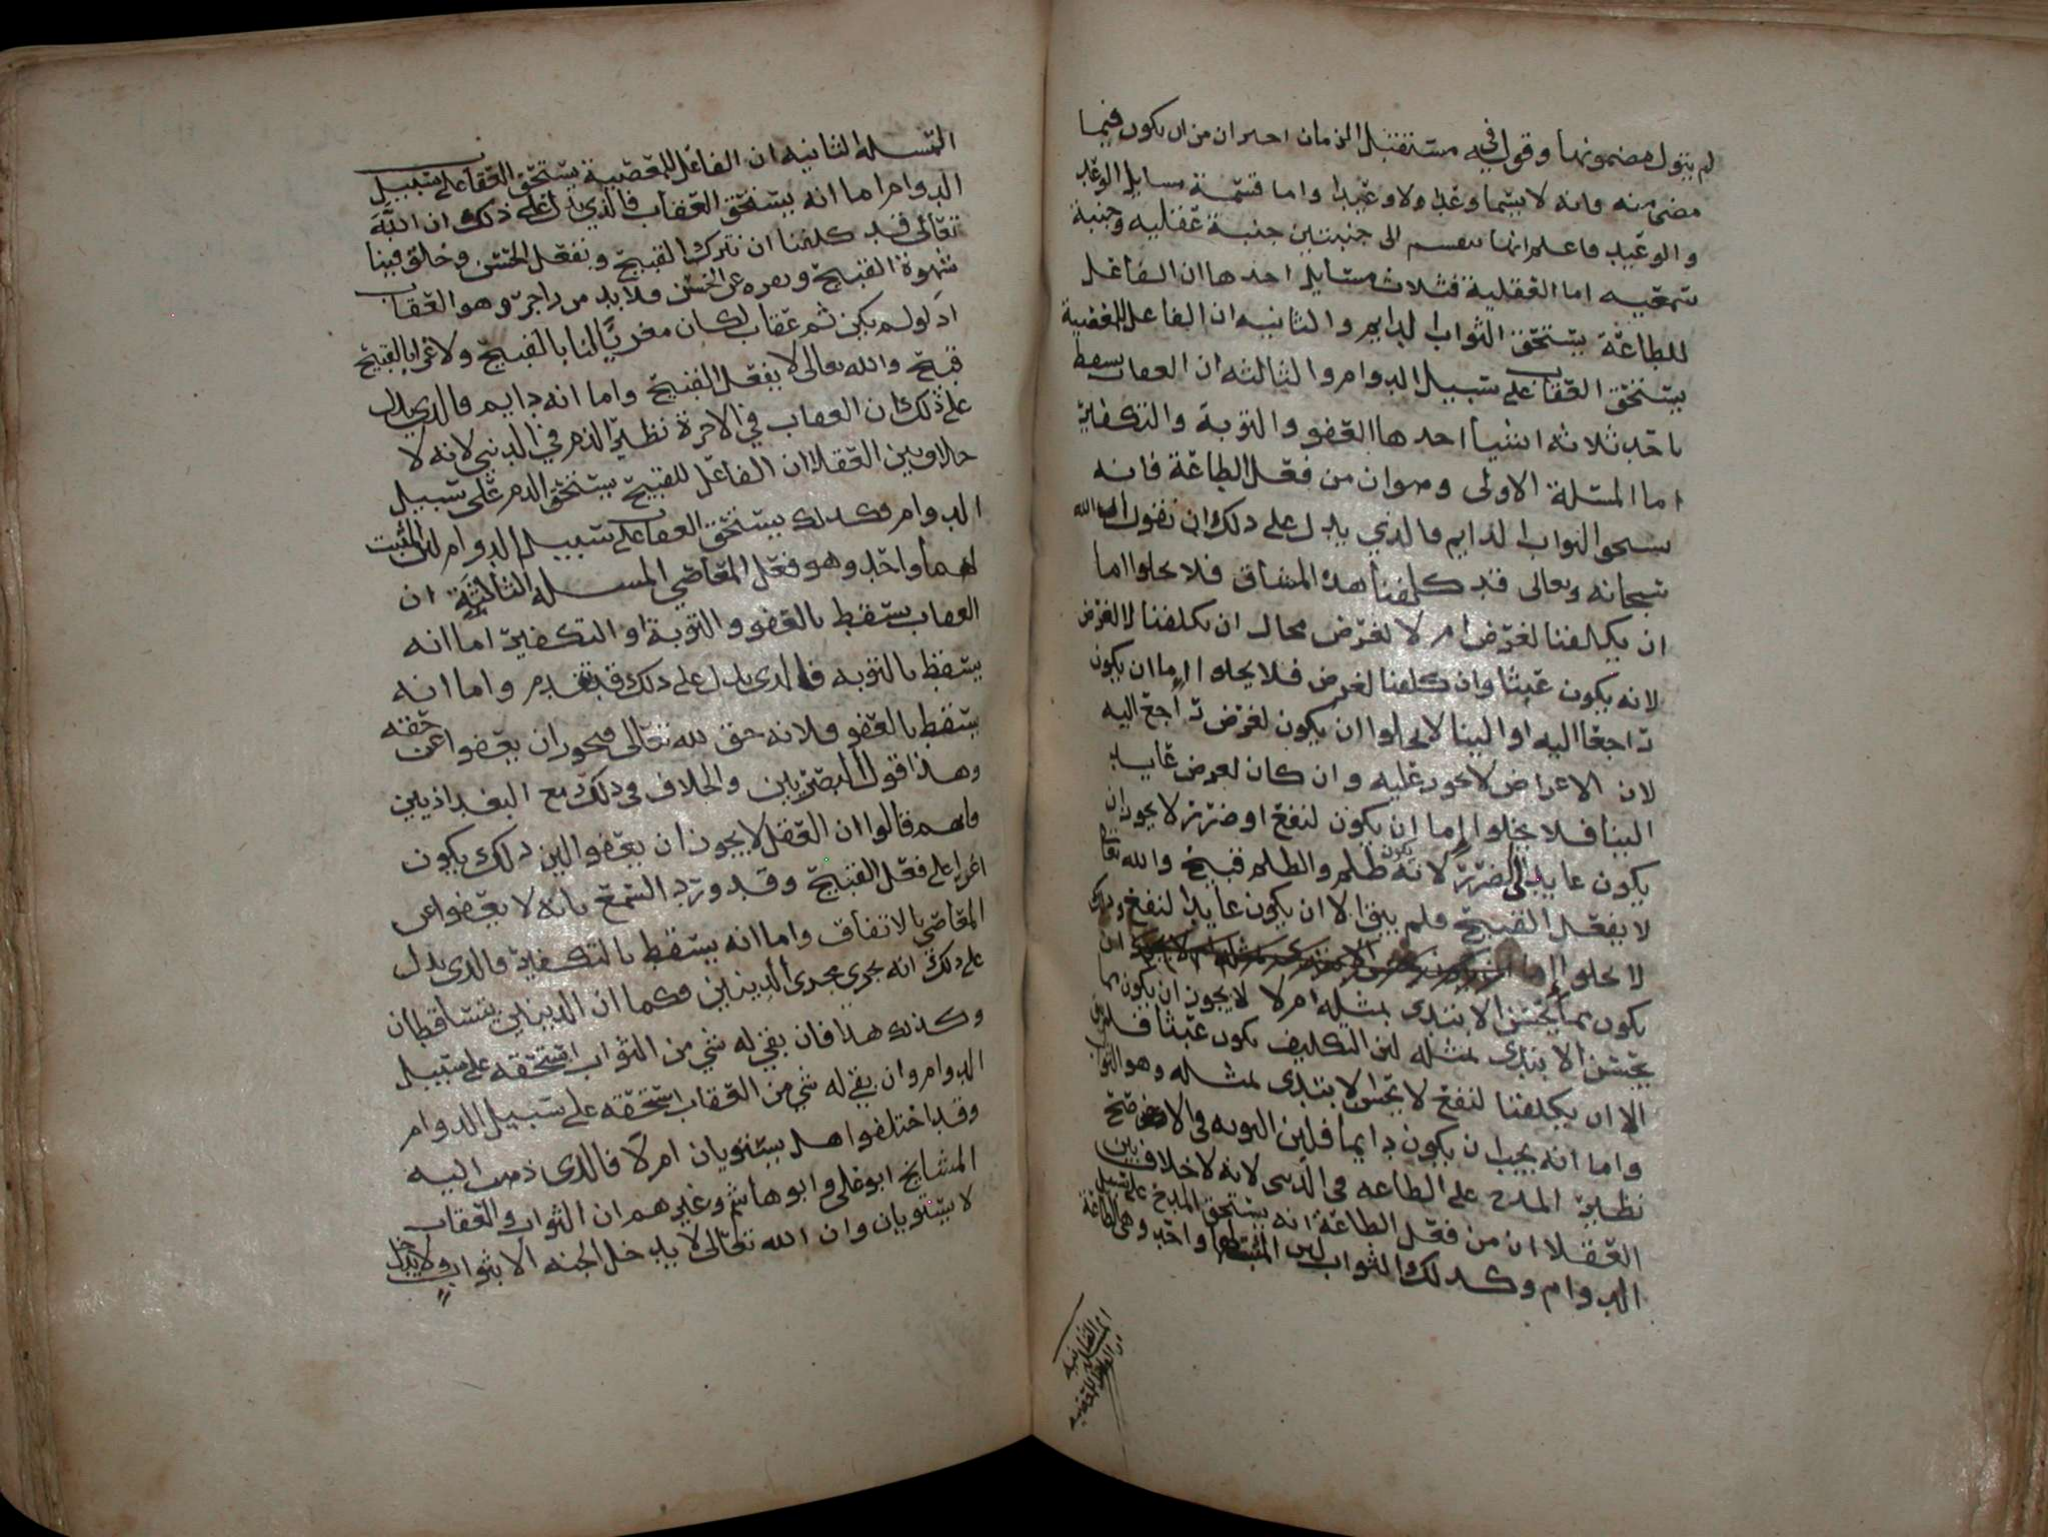 لم يتول مضمونها وقول في مستقبل الزمان احتراز من ان يكون فيما
مضى منه فانه لا يسما وعدا ولا وعيدا واما قسمة مسايل الوعد
والوعيد فاعلم انها تنقسم الى جنبتين جنبة عقليه وجنبة
سمعيه اما العقلية فثلاث مسايل احدها ان الفاعل
للطاعة يستحق الثواب الدايم والثانيه ان الفاعل للمعصية
يستحق العقاب على سبيل الدوام والثالثه ان العقاب يسقط
باحد ثلاثه اشيا احدها العفو والتوبة والتكفير
اما المسئلة الاولى وهو ان من فعل الطاعة فانه
يستحق الثواب الدايم فالذي يدل على ذلك ان نقول ان الله
سبحانه وتعالى قد كلفنا هذه المشاق فلا يخلوا اما
ان يكلفنا لغرض ام لا لغرض محال ان يكلفنا لا لغرض
لانه يكون عبثا وان كلفنا لغرض فلا يخلوا اما ان يكون
راجعا اليه او الينا لا يخلوا ان يكون لغرض راجع اليه
لان الاعراض لا تجوز عليه وان كان لغرض عايد
الينا فلا يخلوا اما ان يكون لنفع او ضرر لا يجوز ان
يكون عايد الى الضرر لانه يكون ظلم والظلم قبيح والله تعالى
لا يفعل القبيح فلم يبق الا ان يكون عايدا لنفع
لا يخلوا اما ان
يكون مما يحسن الابتدى بمثله ام لا لا يجوز ان يكون مما
يحسن الابتدى بمثله لان التكليف يكون عبثا فلم يبق
الا ان يكلفنا لنفع لا يحسن الابتدى بمثله وهو الثواب
واما انه يجب ان يكون دايما فلان الثواب في الاخره
نظير المدح على الطاعه في الدنيا لانه لا خلاف بين
العقلا ان من فعل الطاعة انه يستحق المدح على سبيل
الدوام وكذلك الثواب لان المثبت لهما واحد وهي الطاعة
المسئلة الثانيه
ان الفاعل للمعصيه
المسئلة الثانيه ان الفاعل للمعصية يستحق العقاب على سبيل
الدوام اما انه يستحق العقاب فالذي يدل على ذلك ان الله
تعالى قد كلفنا ان نترك القبيح ونفعل الحسن وخلق فينا
شهوة القبيح ونفره عن الحسن فلا بد من زاجر وهو العقاب
اذ لو لم يكن ثم عقاب لكان مغريا لنا بالقبيح والاغرا بالقبيح
قبيح والله تعالى لا يفعل القبيح واما انه دايم فالذي يدل
على ذلك ان العقاب في الاخرة نظير الذم في الدنيا لانه لا
خلاف بين العقلا ان الفاعل للقبيح يستحق الذم على سبيل
الدوام فكذلك يستحق العقاب على سبيل الدوام لان المثبت
لهما واحد وهو فعل المعاصي المسئله الثالثة ان
العقاب يسقط بالعفو والتوبة او التكفير اما انه
يسقط بالتوبه فالذي يدل على ذلك قد تقدم واما انه
يسقط بالعفو فلانه حق لله تعالى فيجوز ان يعفوا عن حقه
وهذا قول البصريين والخلاف في ذلك مع البغداديين
فانهم قالوا ان العقل لا يجوز ان يعفوا لان ذلك يكون
اغرا على فعل القبيح وقد ورد السمع بانه لا يعفوا عن
المعاصي بالاتفاق واما انه يسقط بالتكفير فالذي يدل
على ذلك انه يجري مجرى الدينين فكما ان الدينين يتساقطان
وكذلك هذا فان بقي له شي من الثواب استحقه على سبيل
الدوام وان بقي له شي من العقاب استحقه على سبيل الدوام
وقد اختلفوا هل يستويان ام لا فالذي ذهب اليه
المشايخ ابو علي وابو هاشم وغيرهم ان الثواب والعقاب
لا يستويان وان الله تعالى لا يدخل الجنه الا بثواب ولا يدخل